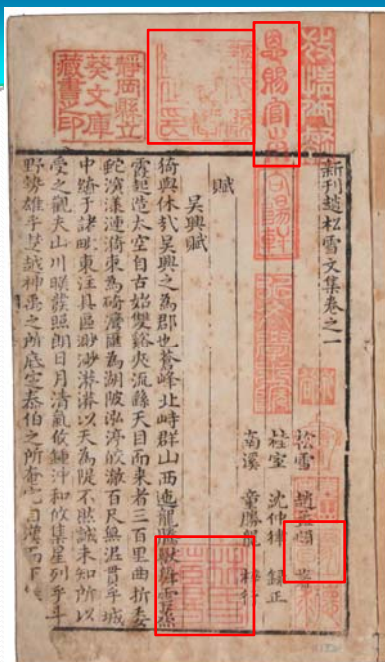 靜岡縣立
葵文庫
藏書印
恩賜官
向陽軒
新刊趙松雪文集卷之一
松雪 趙孟頫 著
桂室 沈仲律 録正
南溪 童勝龍 梓行
賦
吳興賦
猗與休哉吳興之為郡也蒼峰北峙群山西迤龍騰獸舞雲蒸
霞起造太空自古始雙谿夾流繇天目而来者三百里曲折委
蛇演漾漣漪東為碕灣匯為湖陂泓渟皎澈百尺無泥貫乎城
中繞于諸毗東注具區渺渺漭漭以天為隄不然誠未知所以
受之觀夫山川暎發照朗日月清氣攸鍾沖和攸集星列乎斗
野勢雄乎楚越神禹之所底定泰伯之所奄宅自漢而下